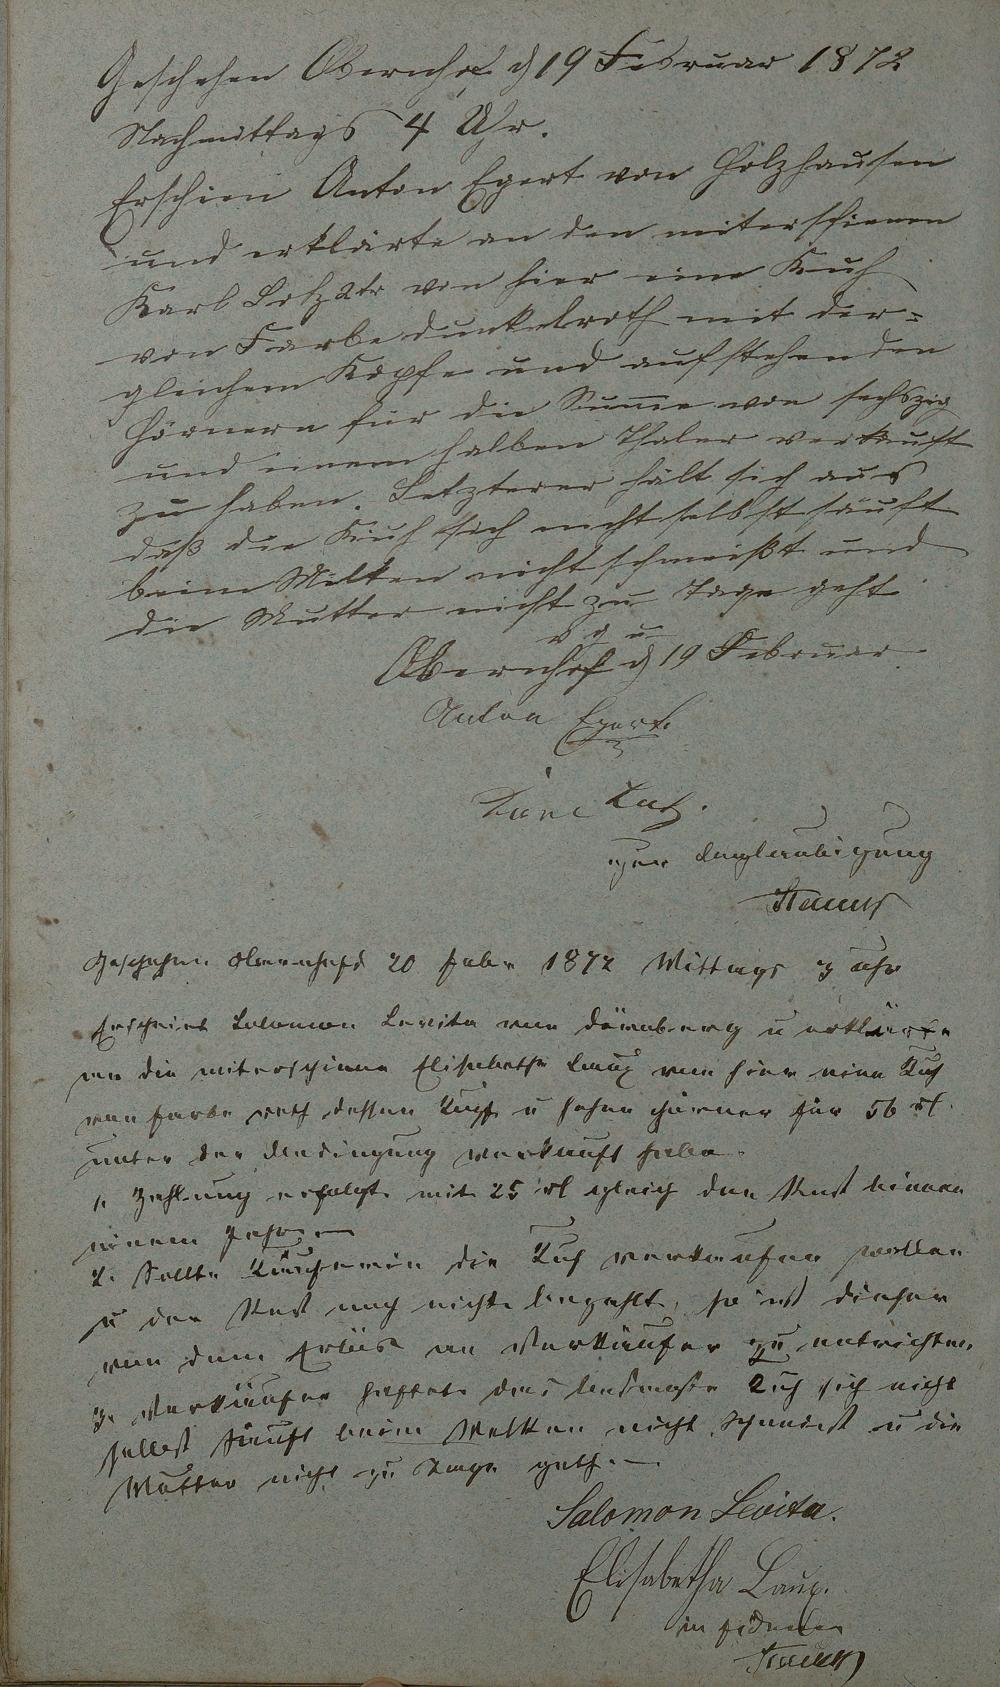 Geschehen Obernhof d 19 Februar 1872
Nachmittags 4 Uhr.
Erschien Anton Egert von Holzhausen
und erklärte an den miterschienen
Karl Lotz 2tr von hier eine Kuh
von Farbe dunkelroth mit der=
gleichem Kopfe und aufstehenden
Hörnern für die Summe von sechszig
und einem halben Thaler verkauft
zu haben. Letzterer hält sich aus
daß die Kuh sich nicht selbst säuft
beim Melken nicht schmeißt und
die Mutter nicht zu Tage geht
v g u
Obernhof d 19 Februar
Anton Egert.
Karl Lotz.
zur Beglaubigung
Geschehen Obernhof d 20 Febr 1872 Mittags 3 Uhr
Erscheint Salomon Levita von Dörnberg u erklärte
an die miterschiene Elisabetha Laux von hier eine Kuh
von Farbe roth dessen Kopf u hohen Hörner für 56 rl.
unter der Bedingung verkauft habe.
1. Zahlung erfolgt mit 25 rl gleich den Rest binnen
einem Jahr
2. Sollte Käuferin die Kuh verkaufen wollen
u der Rest noch nicht bezahlt, so ist dieser
von dem Erlös an Verkäufer zu entrichten.
3. Verkäufer haftet das besagte Kuh sich nicht
selbst säuft beim Melken nicht schmeist u die
Mutter nicht zu Tage geht.
Salomon Levita.
Elisabetha Laux.
in fidem